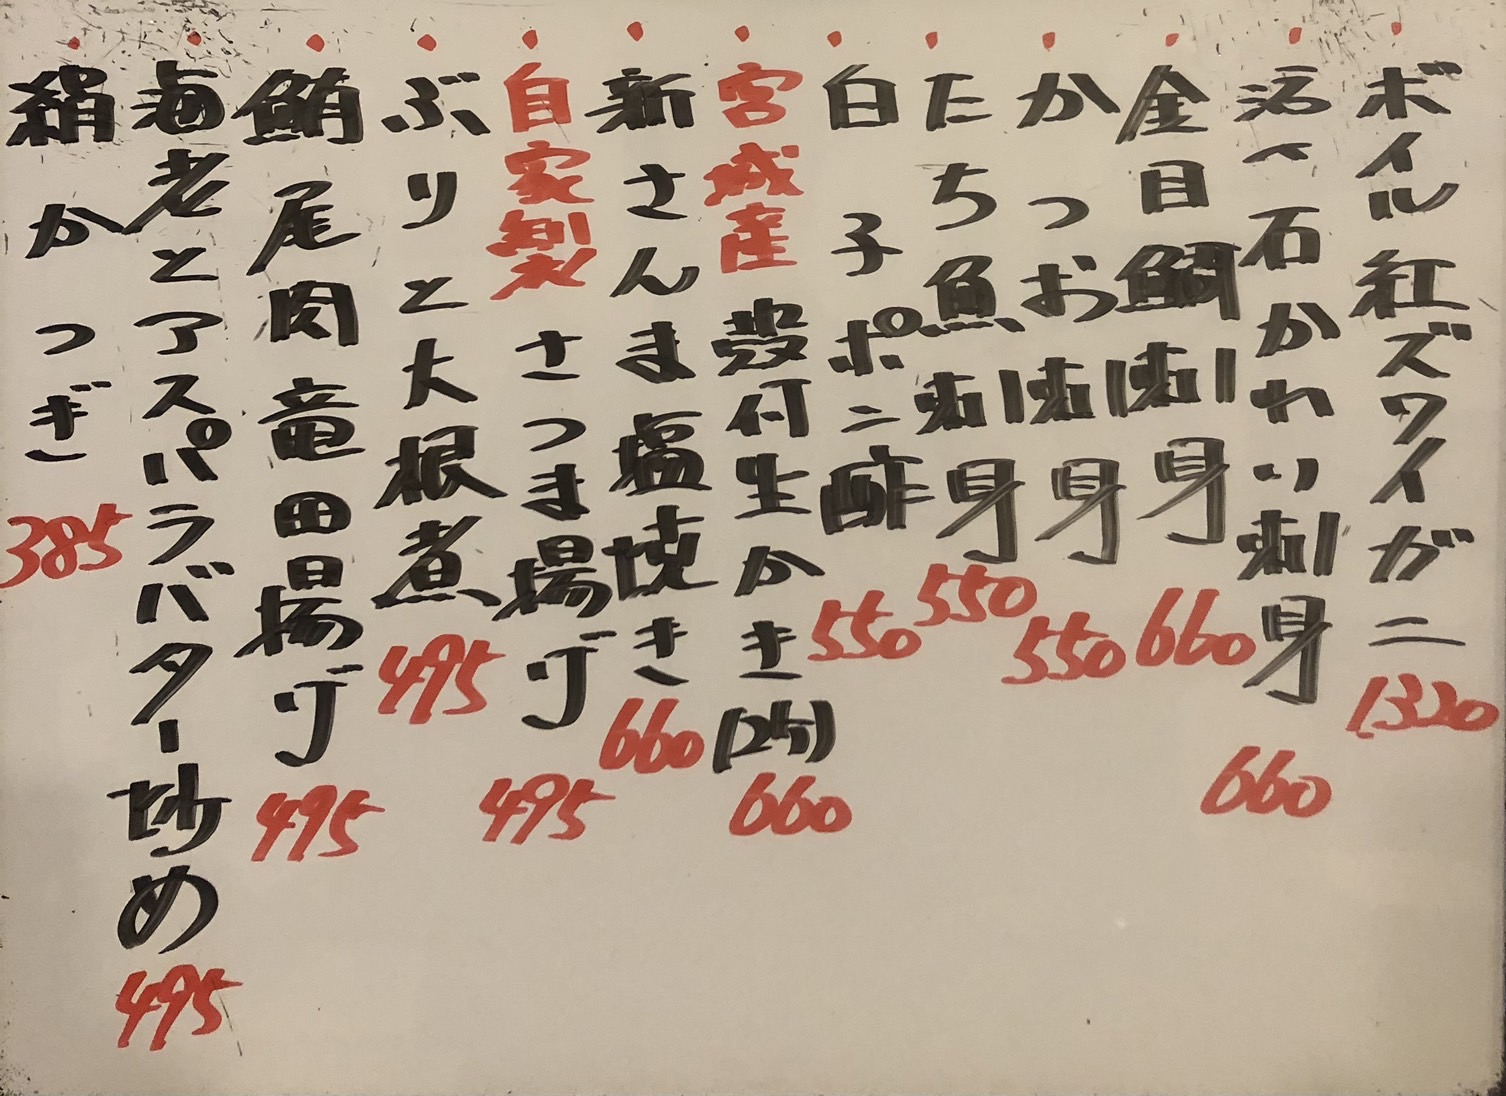 ボイル紅ズワイガニ 1320
活〆石かわり刺身 660
金目鯛刺身 660
かつお刺身 550
たち魚刺身 550
白子ポン酢 550
宮城産 殻付生かき(2ヶ) 660
新さんま塩焼き 660
自家製 さつま揚げ 495
ぶりと大根煮 495
鮪尾肉竜田揚げ 495
海老とアスパラバター炒め 495
絹かつぎ 385